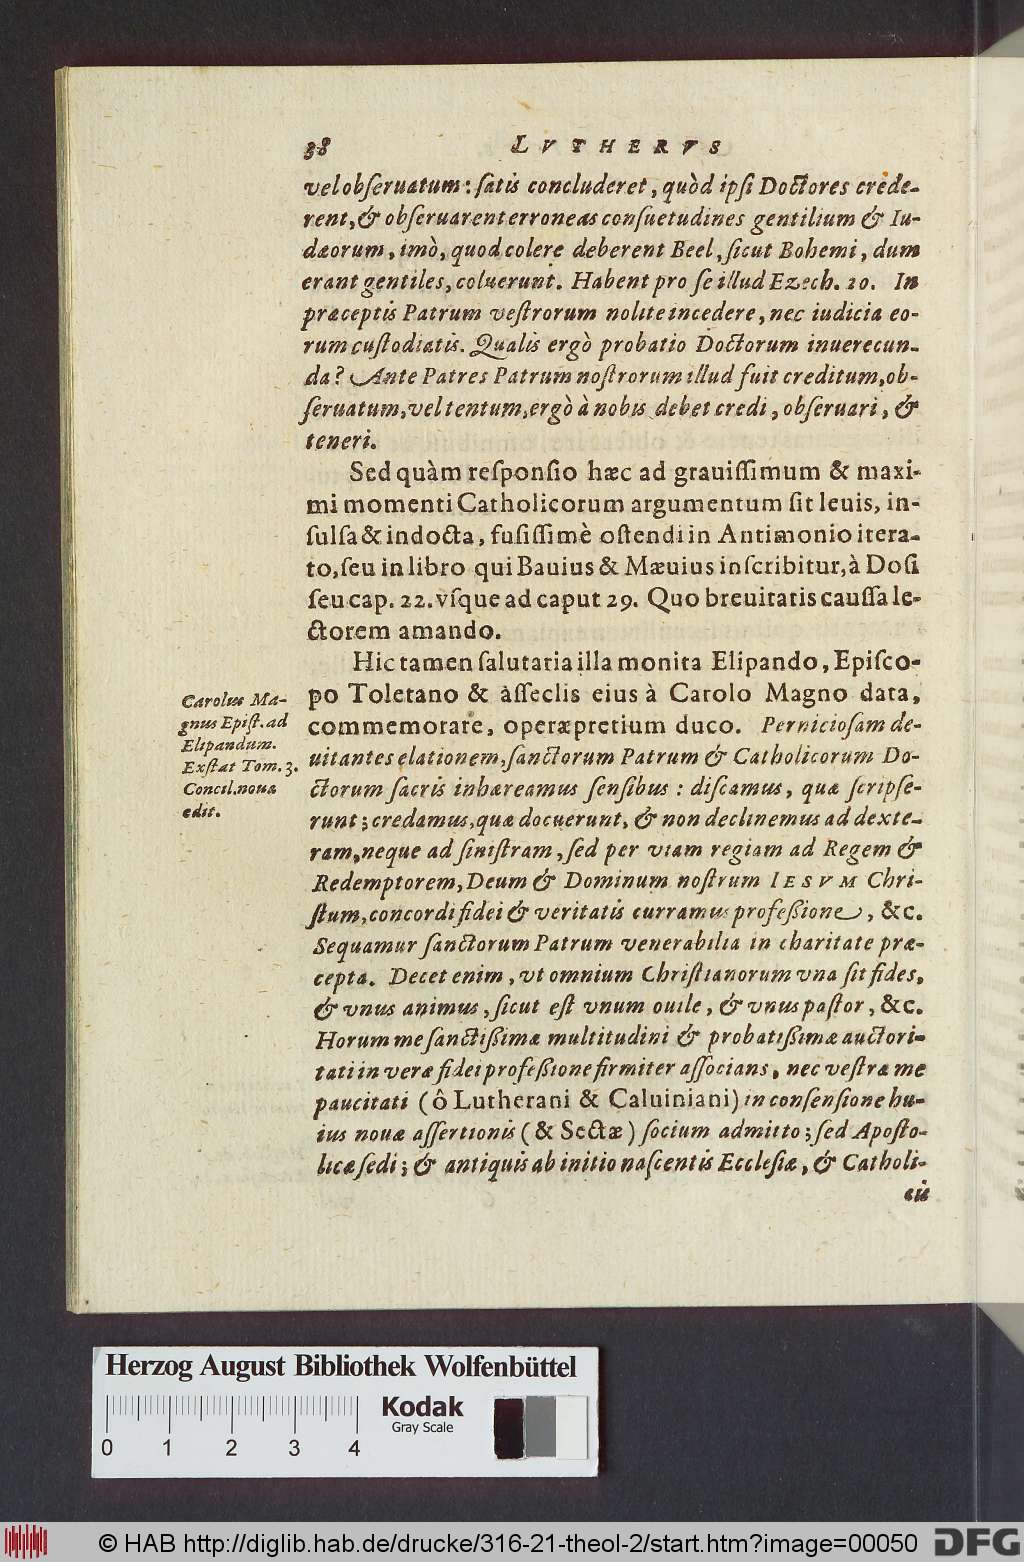 38 LVTHERVS
vel obſeruatum: ſatis concluderet, quòd ipſi Doctores crede-
rent, & obſeruarent erroneas conſuetudines gentilium & Iu-
dæorum, imò, quod colere deberent Beel, ſicut Bohemi, dum
erant gentiles, coluerunt. Habent pro ſe illud Ezech. 20. In
præceptis Patrum veſtrorum nolite incedere, nec iudicia eo-
rum cuſtodiatis. Qualis ergò probatio Doctorum inuerecun-
da? Ante Patres Patrum noſtrorum illud fuit creditum, ob-
ſeruatum, vel tentum, ergò à nobis debet credi, obſeruari, &
teneri.
Sed quàm reſponſio hæc ad grauiſſimum & maxi-
mi momenti Catholicorum argumentum ſit leuis, in-
ſulſa & indocta, fuſiſſimè oſtendi in Antimonio itera-
to, ſeu in libro qui Bauius & Mæuius inſcribitur, à Doſi
ſeu cap. 22. vſque ad caput 29. Quo breuitatis cauſſa le-
ctorem amando.
Hic tamen ſalutaria illa monita Elipando, Epiſco-
po Toletano & àſſeclis eius à Carolo Magno data,
commemorare, operæpretium duco. Pernicioſam de-
uitantes elationem, ſanctorum Patrum & Catholicorum Do-
ctorum ſacris inhæreamus ſenſibus : diſcamus, quæ ſcripſe-
runt; credamus, quæ docuerunt, & non declinemus ad dexte-
ram, neque ad ſiniſtram, ſed per viam regiam ad Regem &
Redemptorem, Deum & Dominum noſtrum IESVM Chri-
ſtum, concordi fidei & veritatis curramus profeßione, &c.
Sequamur ſanctorum Patrum venerabilia in charitate præ-
cepta. Decet enim, vt omnium Chriſtianorum vna ſit fides,
& vnus animus, ſicut eſt vnum ouile, & vnus paſtor, &c.
Horum me ſanctißimæ multitudini & probatißimæ auctori-
tati in veræ fidei profeßione firmiter aſſocians, nec veſtræ me
paucitati (ô Lutherani & Caluiniani) in conſenſione hu-
ius nouæ aſſertionis (& Sectæ) ſocium admitto; ſed Apoſto-
licæ ſedi; & antiquis ab initio naſcentis Eccleſiæ, & Catholi-
cis
Carolus Ma-
gnus Epiſt. ad
Elipandum.
Exſtat Tom. 3.
Concil. noua
edit.
Herzog August Bibliothek Wolfenbüttel
Kodak
Gray Scale
0 1 2 3 4
© HAB http://diglib.hab.de/drucke/316-21-theol-2/start.htm?image=00050
DFG